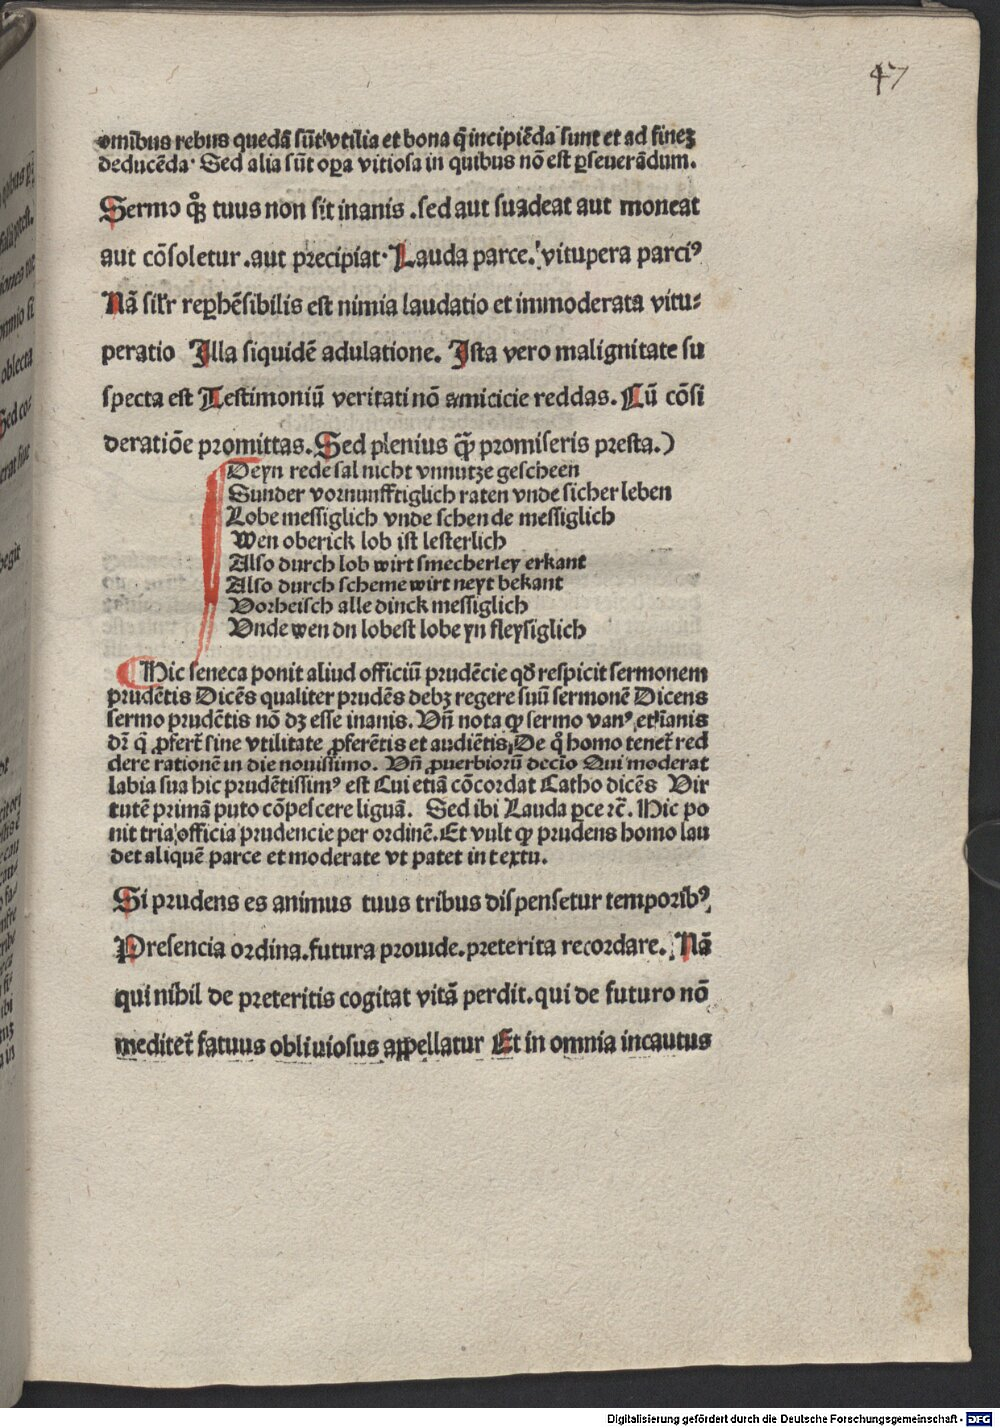 47
omnibus rebus quedã sũt vtilia et bona q̃ incipiẽda sunt et ad finez
deducẽda· Sed alia sũt oꝑa vitiosa in quibus nõ est ꝑseuerãdum.
Sermo qͦꝫ tuus non sit inanis .sed aut suadeat aut moneat
aut cõsoletur .aut precipiat· Lauda parce. vitupera parciꝰ
Nã silr̃ reꝓhẽsibilis est nimia laudatio et immoderata vitu-
peratio Illa siquidẽ adulatione. Ista vero malignitate su
specta est Testimoniũ veritati nõ amicicie reddas. Cũ cõsi
deratiõe promittas. Sed plenius q̃ꝫ promiseris presta.)
Deyn rede sal nicht vnnutze gescheen
Sunder vornunfftiglich raten vnde sicher leben
Lobe messiglich vnde schen de messiglich
Wen oberick lob ist lesterlich
Also durch lob wirt smecherley erkant
Also durch scheme wirt neyt bekant
Vorheisch alle dinck messiglich
Vnde wen dn lobest lobe yn fleysiglich
Hic seneca ponit aliud officiũ prudẽcie qđ respicit sermonem
prudẽtis Dicẽs qualiter prudẽs debꝫ regere suũ sermonẽ Dicens
sermo prudẽtis nõ dꝫ esse inanis. Vñ nota ꝙ sermo vanꝰ et ĩanis
dr̃ q̃ ꝓfert̃ sine vtilitate ꝓferẽtis et audiẽtis, De qͦ homo tenet̃ red
dere rationẽ in die nouissimo. Vñ ꝓuerbiorũ decĩo Qui moderat
labia sua hic prudẽtissimꝰ est Cui etiã cõcordat Catho dicẽs Vir
tutẽ primã puto cõpescere liguã. Sed ibi Lauda ꝑce rc̃. Hic po
nit tria officia prudencie per ordinẽ. Et vult ꝙ prudens homo lau
det aliquẽ parce et moderate vt patet in textu.
Si prudens es animus tuus tribus dispensetur temporibꝰ.
Presencia ordina.futura prouide.preterita recordare. Nã
qui nihil de preteritis cogitat vitã perdit.qui de futuro nõ
meditet̃ fatuus obliuiosus aꝓpellatur Et in omnia incautus
Digitalisierung gefördert durch die Deutsche Forschungsgemeinschaft - DFG